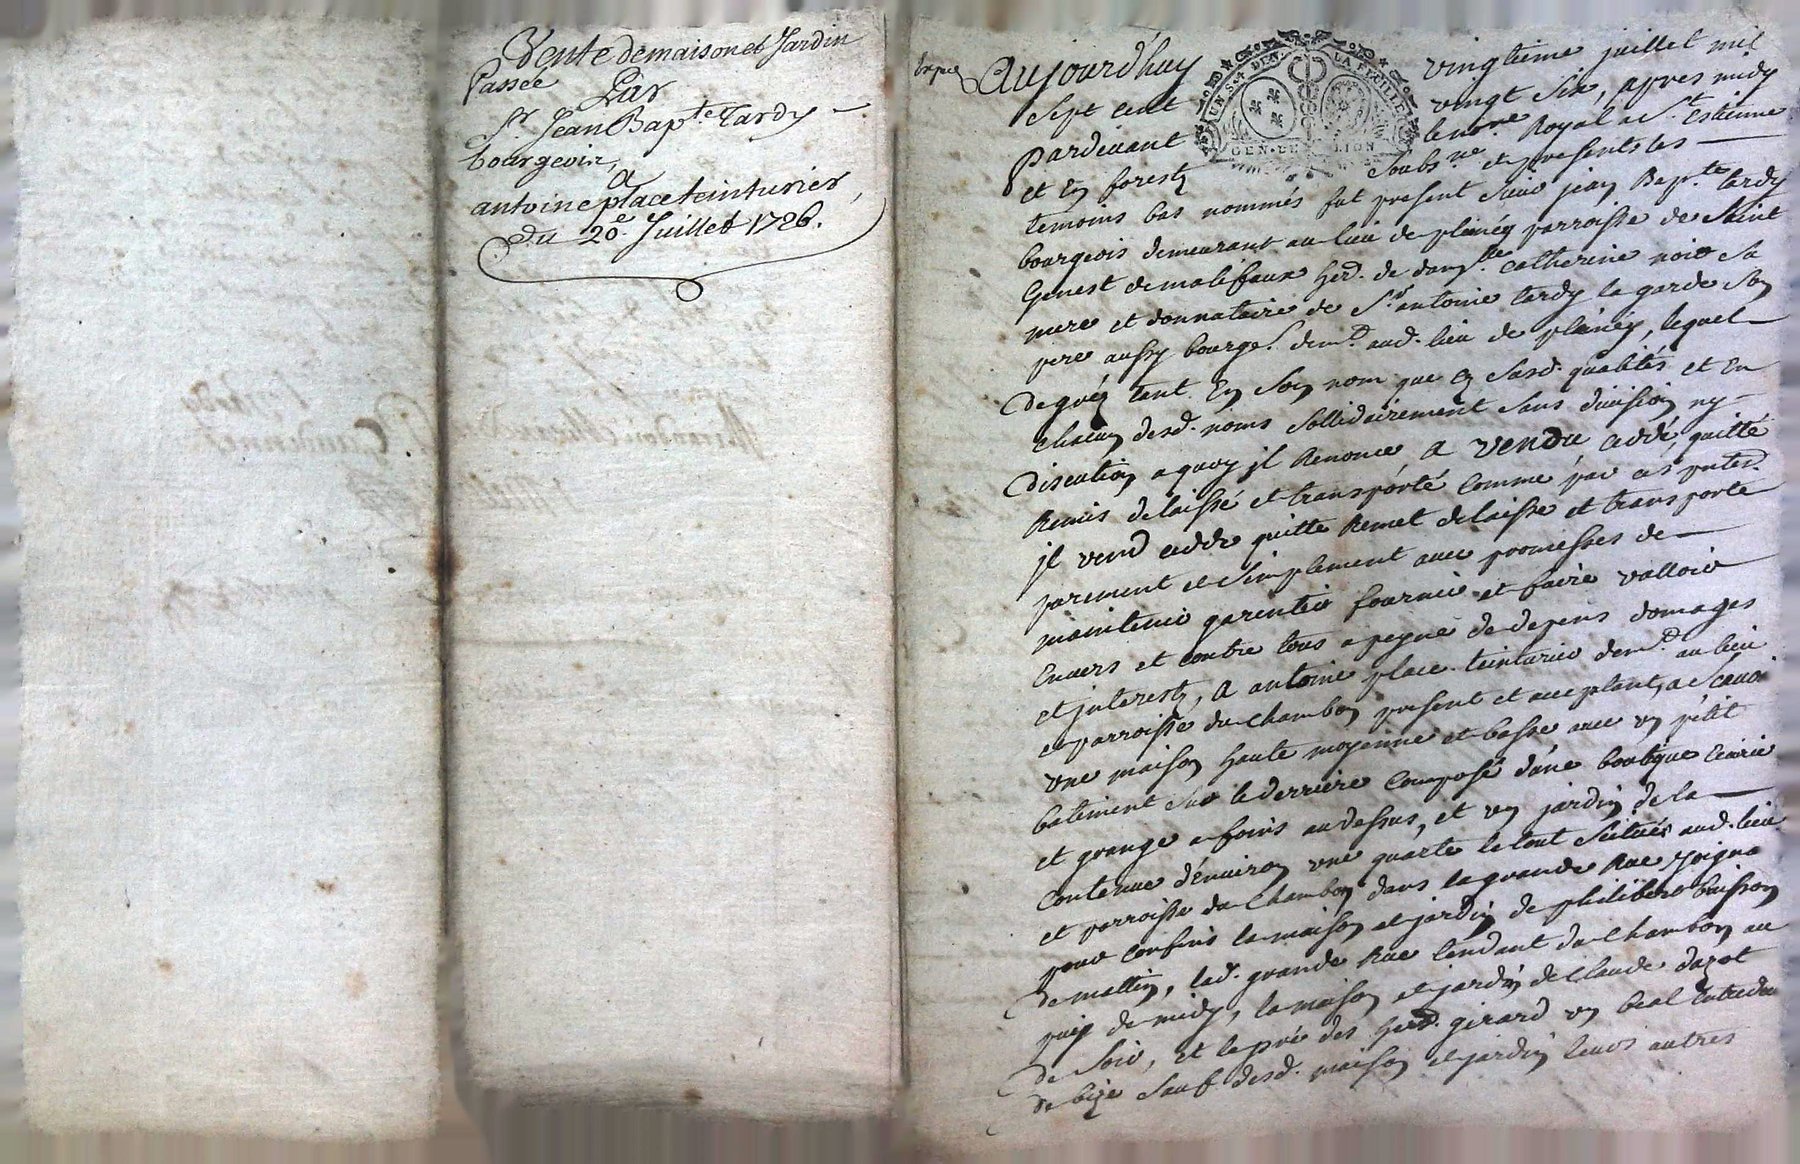 Vente de maison et Jardin
Passée
Par
Sr. Jean Bapte. Tardy
bourgeoir,
a
antoine place teinturier,
du 20e. Juillet 1726.
Aujourd'huy vingtieme juillet mil
sept cent vingt six, apres midy
pardevant le nore Royal a St. Estienne
et En forestz soubsne. et presents les
temoins bas nommés fut present sieur jean Bapte tardy
bourgeois demeurant au lieu de pleney parroisse de Saint
Genest de malifaux herd. de damslle catherine noir sa
mere et donnataire de Sr antoine tardy la garde son
pere aussy bourgs. demt. aud. lieu de pleney, lequel
de gréz tant En son nom que En sasd. qualités et En
chacun desd. noms sollidairement sans division ny
discution a quoy jl Renonce a vendu ceddé, quitté
Remis delaissé et transporté comme par ces pntes.
jl vend cedde quitte Remet delaisse et transporte
purement et simplement avec promesses de
maintenir garentir fournir et faire valloir
Envers et contre tous a peyne de depens domages
et jnterestz, A antoine place teinturier demt. au lieu
et parroisse du Chambon present et acceptant, a Scavoir
une maison haute moyenne et basse avec un petit
batiment sur le derriere composé d'une boutique Ecurie
et grange a foins au dessus, et un jardin de la
contenue d'environ une quarte le tout scitués aud. lieu
et parroisse du Chambon dans la grande Rue joignant
pour confins la maison et jardin de philibert buisson
de mattin, lad. grande Rue tendant du Chambon au
puis de midy, la maison et jardin de Claude dazot
de soir, et le pré des herd. girard un beal entredeux
de bize sauf desd. maison et jardin leurs autres
UN S. 4 DEN. LA FEUILLE
GEN. DE LION